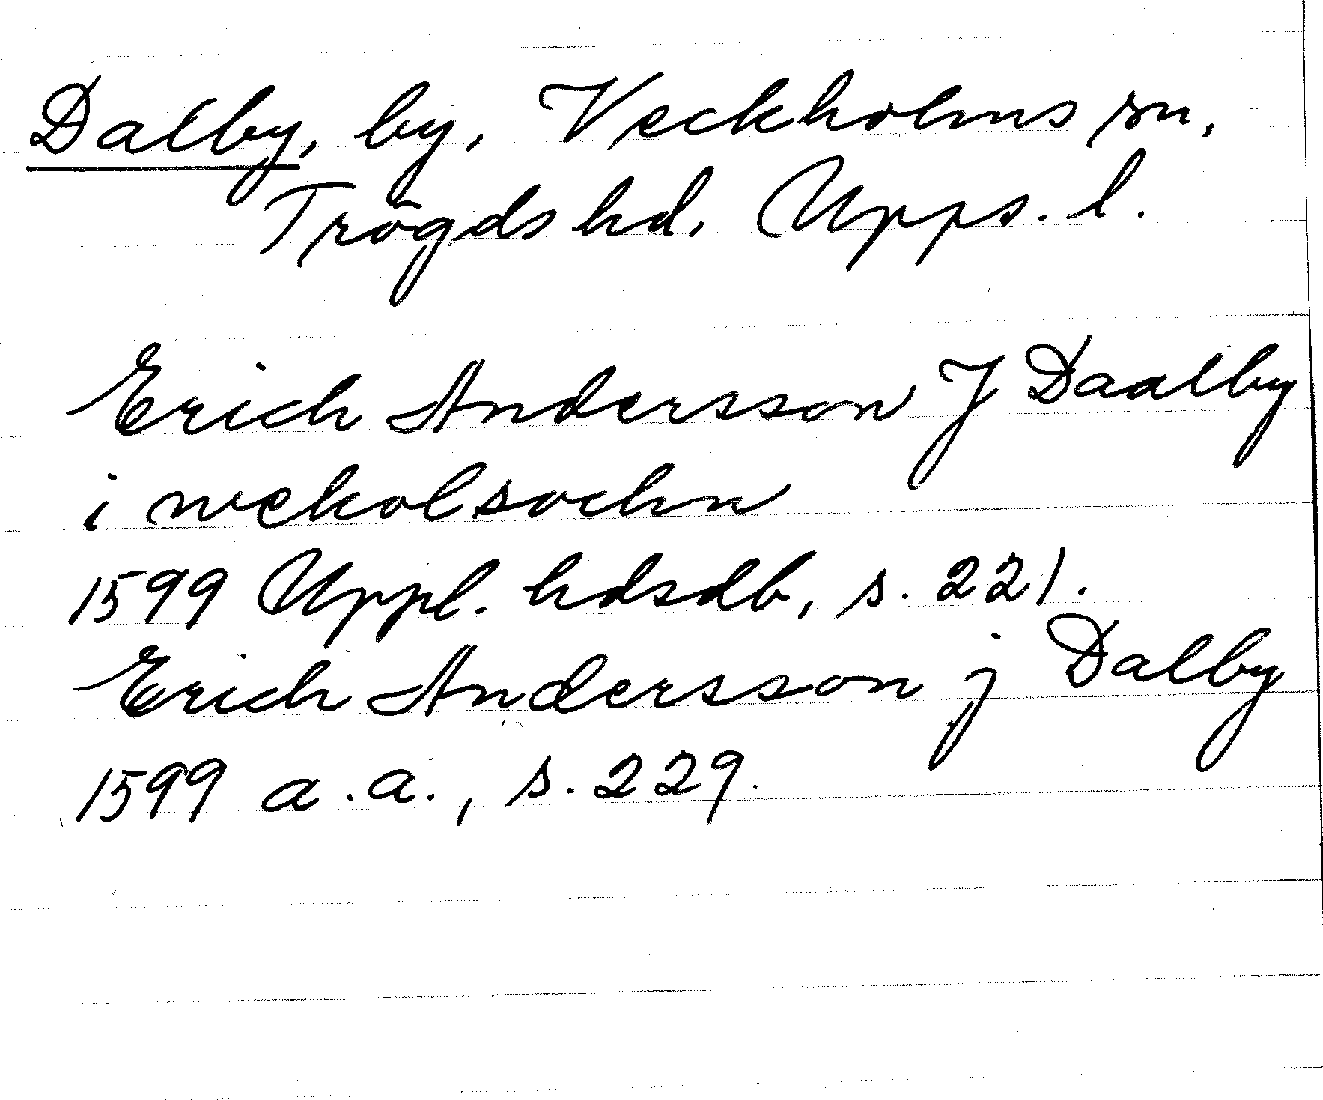 Dalby, by, Veckholms sn,
Trögds hd, Upps. l.
Erich Andersson J Daalby
i wekolsochn
1599 Uppl. hdsdb, s. 221.
Erich Andersson j Dalby
1599 a.a., s. 229.